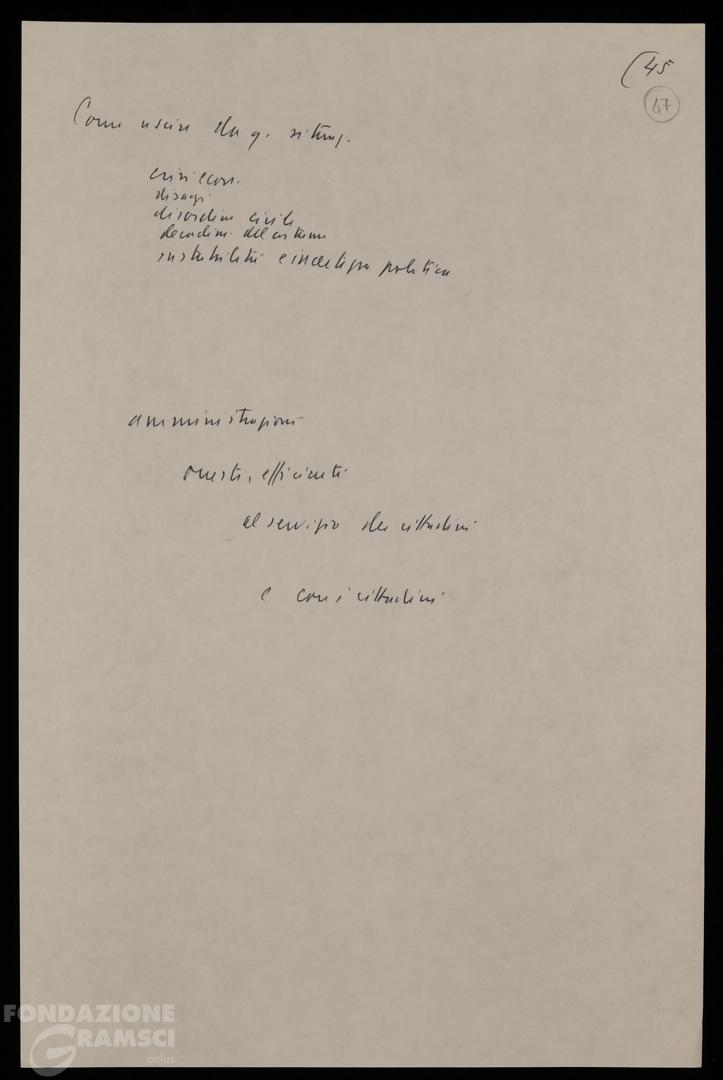 (45
47
Come uscire da q. situaz.
crisi econ.
disagi
disordine civile
decadim. del costume
instabilità e incertezza politica
amministrazioni
oneste, efficienti
al servizio dei cittadini
e con i cittadini
FONDAZIONE
GRAMSCI
onlus